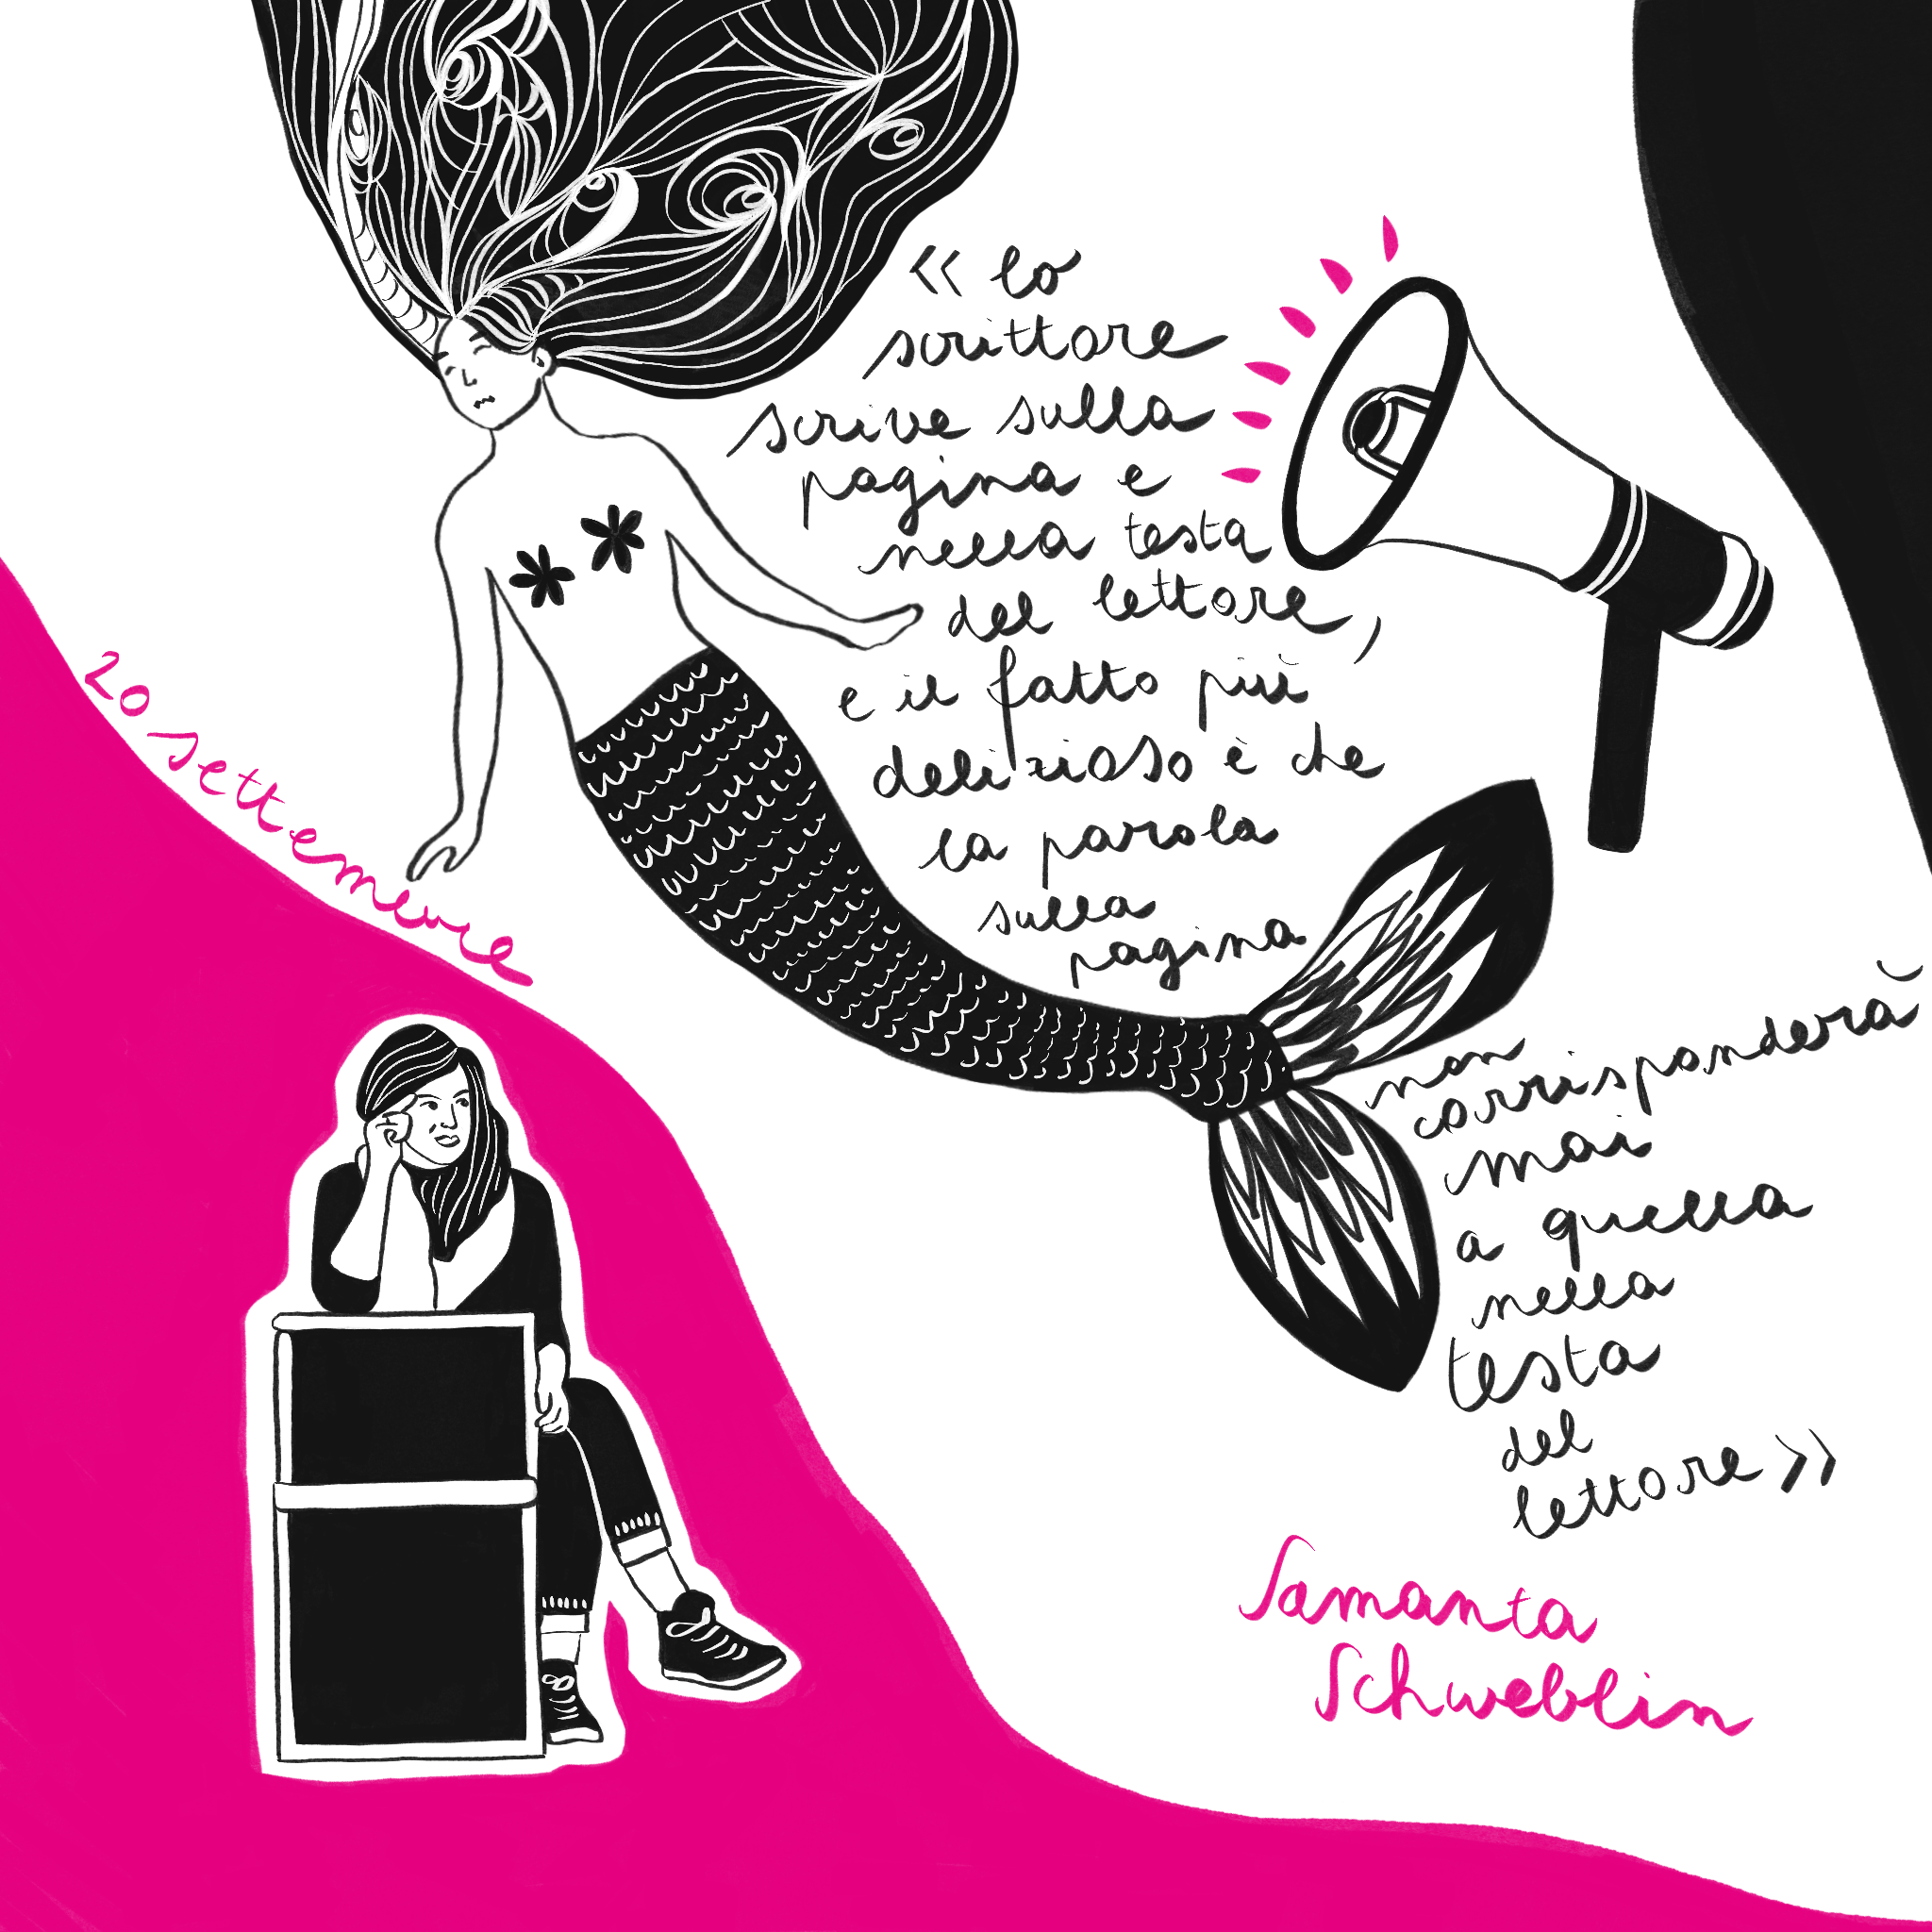 20 settembre
« lo
scrittore
scrive sulla
pagina e
nella testa
del lettore,
e il fatto più
delizioso è che
la parola
sulla
pagina
non
corrisponderà
mai
a quella
nella
testa
del
lettore »
Samanta
Schweblin